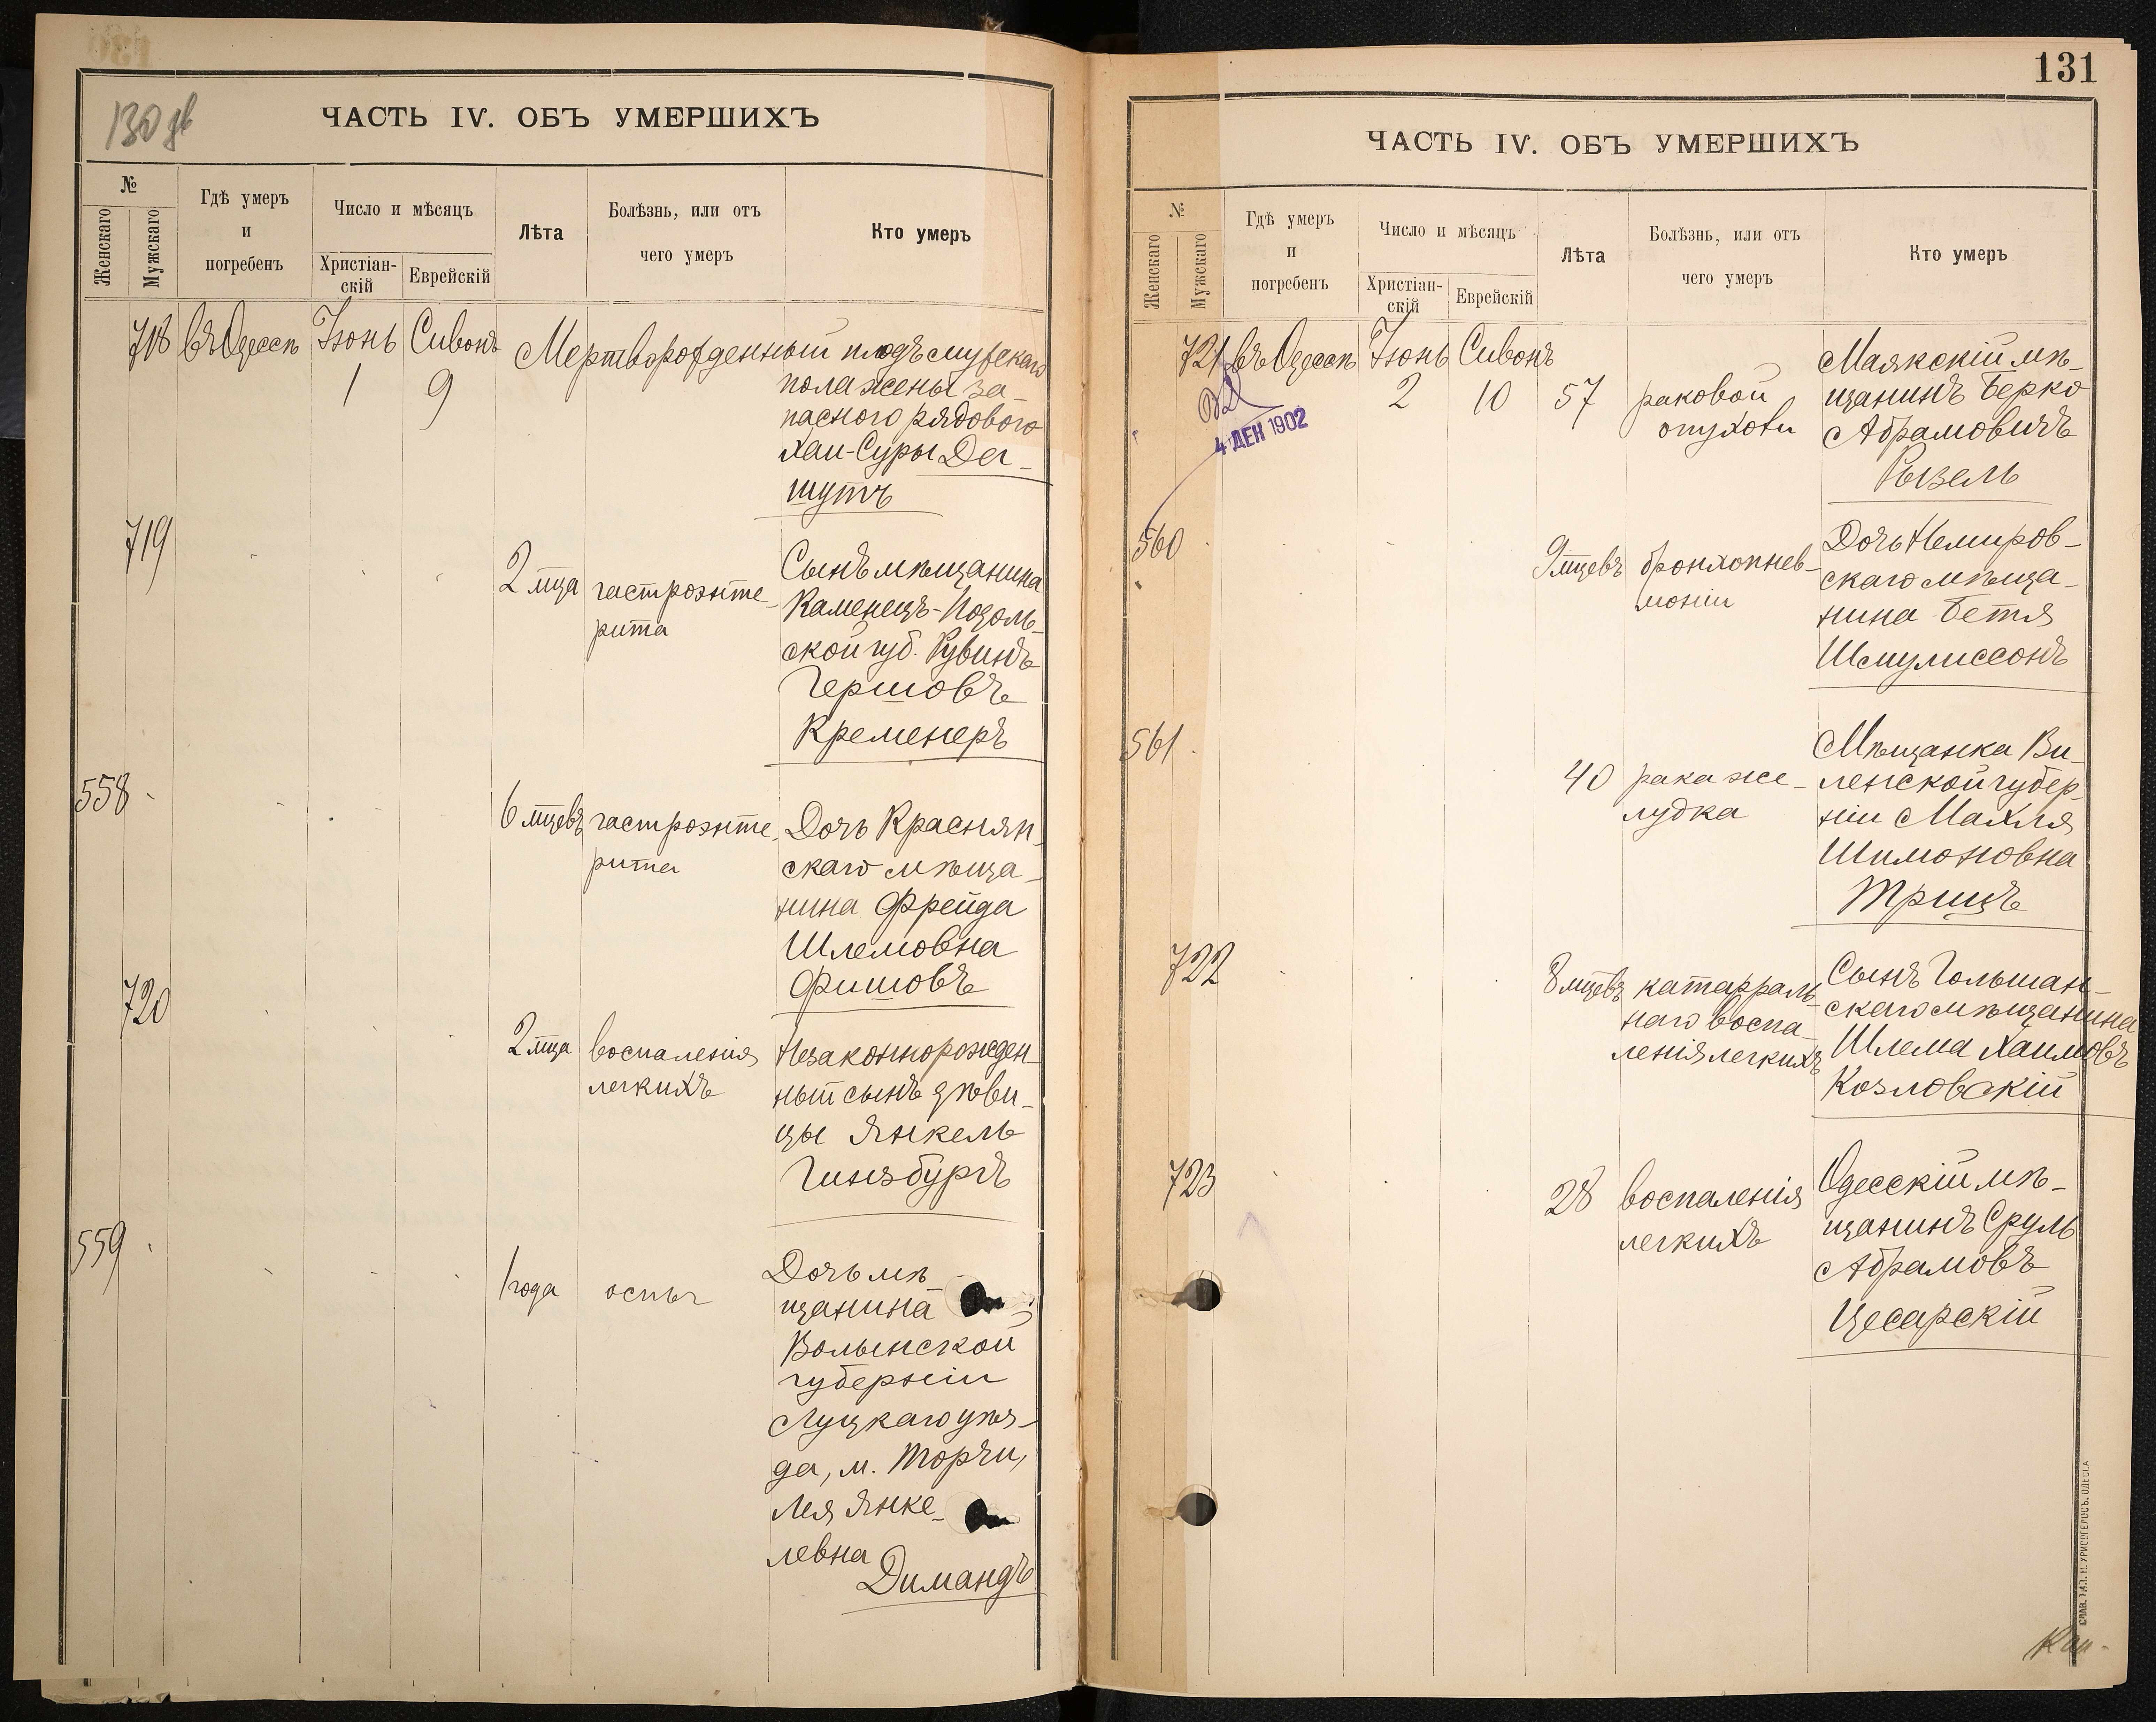 130 об
ЧАСТЬ IV. ОБЪ УМЕРШИХЪ
№
Женскаго
Мужскаго
Гдѣ умеръ
и
погребенъ
Число и мѣсяцъ
Христіан-
скій
Еврейскій
Лѣта
Болѣзнь, или отъ
чего умеръ
Кто умеръ
718 въ Одессѣ Іюнь Сивонъ Мертворожденный плодъ мужскаго
1 9 пола жены за-
паснаго рядового
Хаи-Суры Да-
шутъ
719
2 мца гастроэнте-
рита
Сынъ мѣщанина
Каменецъ-Подоль-
ской губ. Рувинъ
Гершовъ
Кременеръ
558
6 мцевъ гастроэнте-
рита
Дочь Краснян-
скаго мѣща-
нина Фрейда
Шлемовна
Фишовъ
720
2 мца воспаленія
легкихъ
Незаконнорожден-
ный сынъ дѣви-
цы Янкель
Гинзбургъ
559
1 года оспы
Дочь мѣ-
щанина
Волынской
губерніи
Луцкаго уѣз-
да, м. Торчи,
Лея Янке-
левна
Димандъ
131
ЧАСТЬ IV. ОБЪ УМЕРШИХЪ
№
Женскаго
Мужскаго
Гдѣ умеръ
и
погребенъ
Число и мѣсяцъ
Христіан-
скій
Еврейскій
Лѣта
Болѣзнь, или отъ
чего умеръ
Кто умеръ
721 въ Одессѣ Іюнь Сивонъ
2 10 57 раковой
опухоли
Маякскій мѣ-
щанинъ Берко
Абрамовичъ
Рызель
4 ДЕК 1902
560
9 мцевъ бронхопнев-
моніи
Дочь Немиров-
скаго мѣща-
нина Бетя
Шмулиссонъ
561
40 рака же-
лудка
Мѣщанка Ви-
ленской губер-
ніи Махля
Шимоновна
Трицъ
722
8 мцевъ катарраль-
наго воспа-
ленія легкихъ
Сынъ Гольшан-
скаго мѣщанина
Шлема Хаимовъ
Козловскій
723
28 воспаленія
легкихъ
Одесскій мѣ-
щанинъ Сруль
Абрамовъ
Цесарскій
СЛАВ. ТИП. Н. ХРИСОГЕЛОСЪ. ОДЕССА